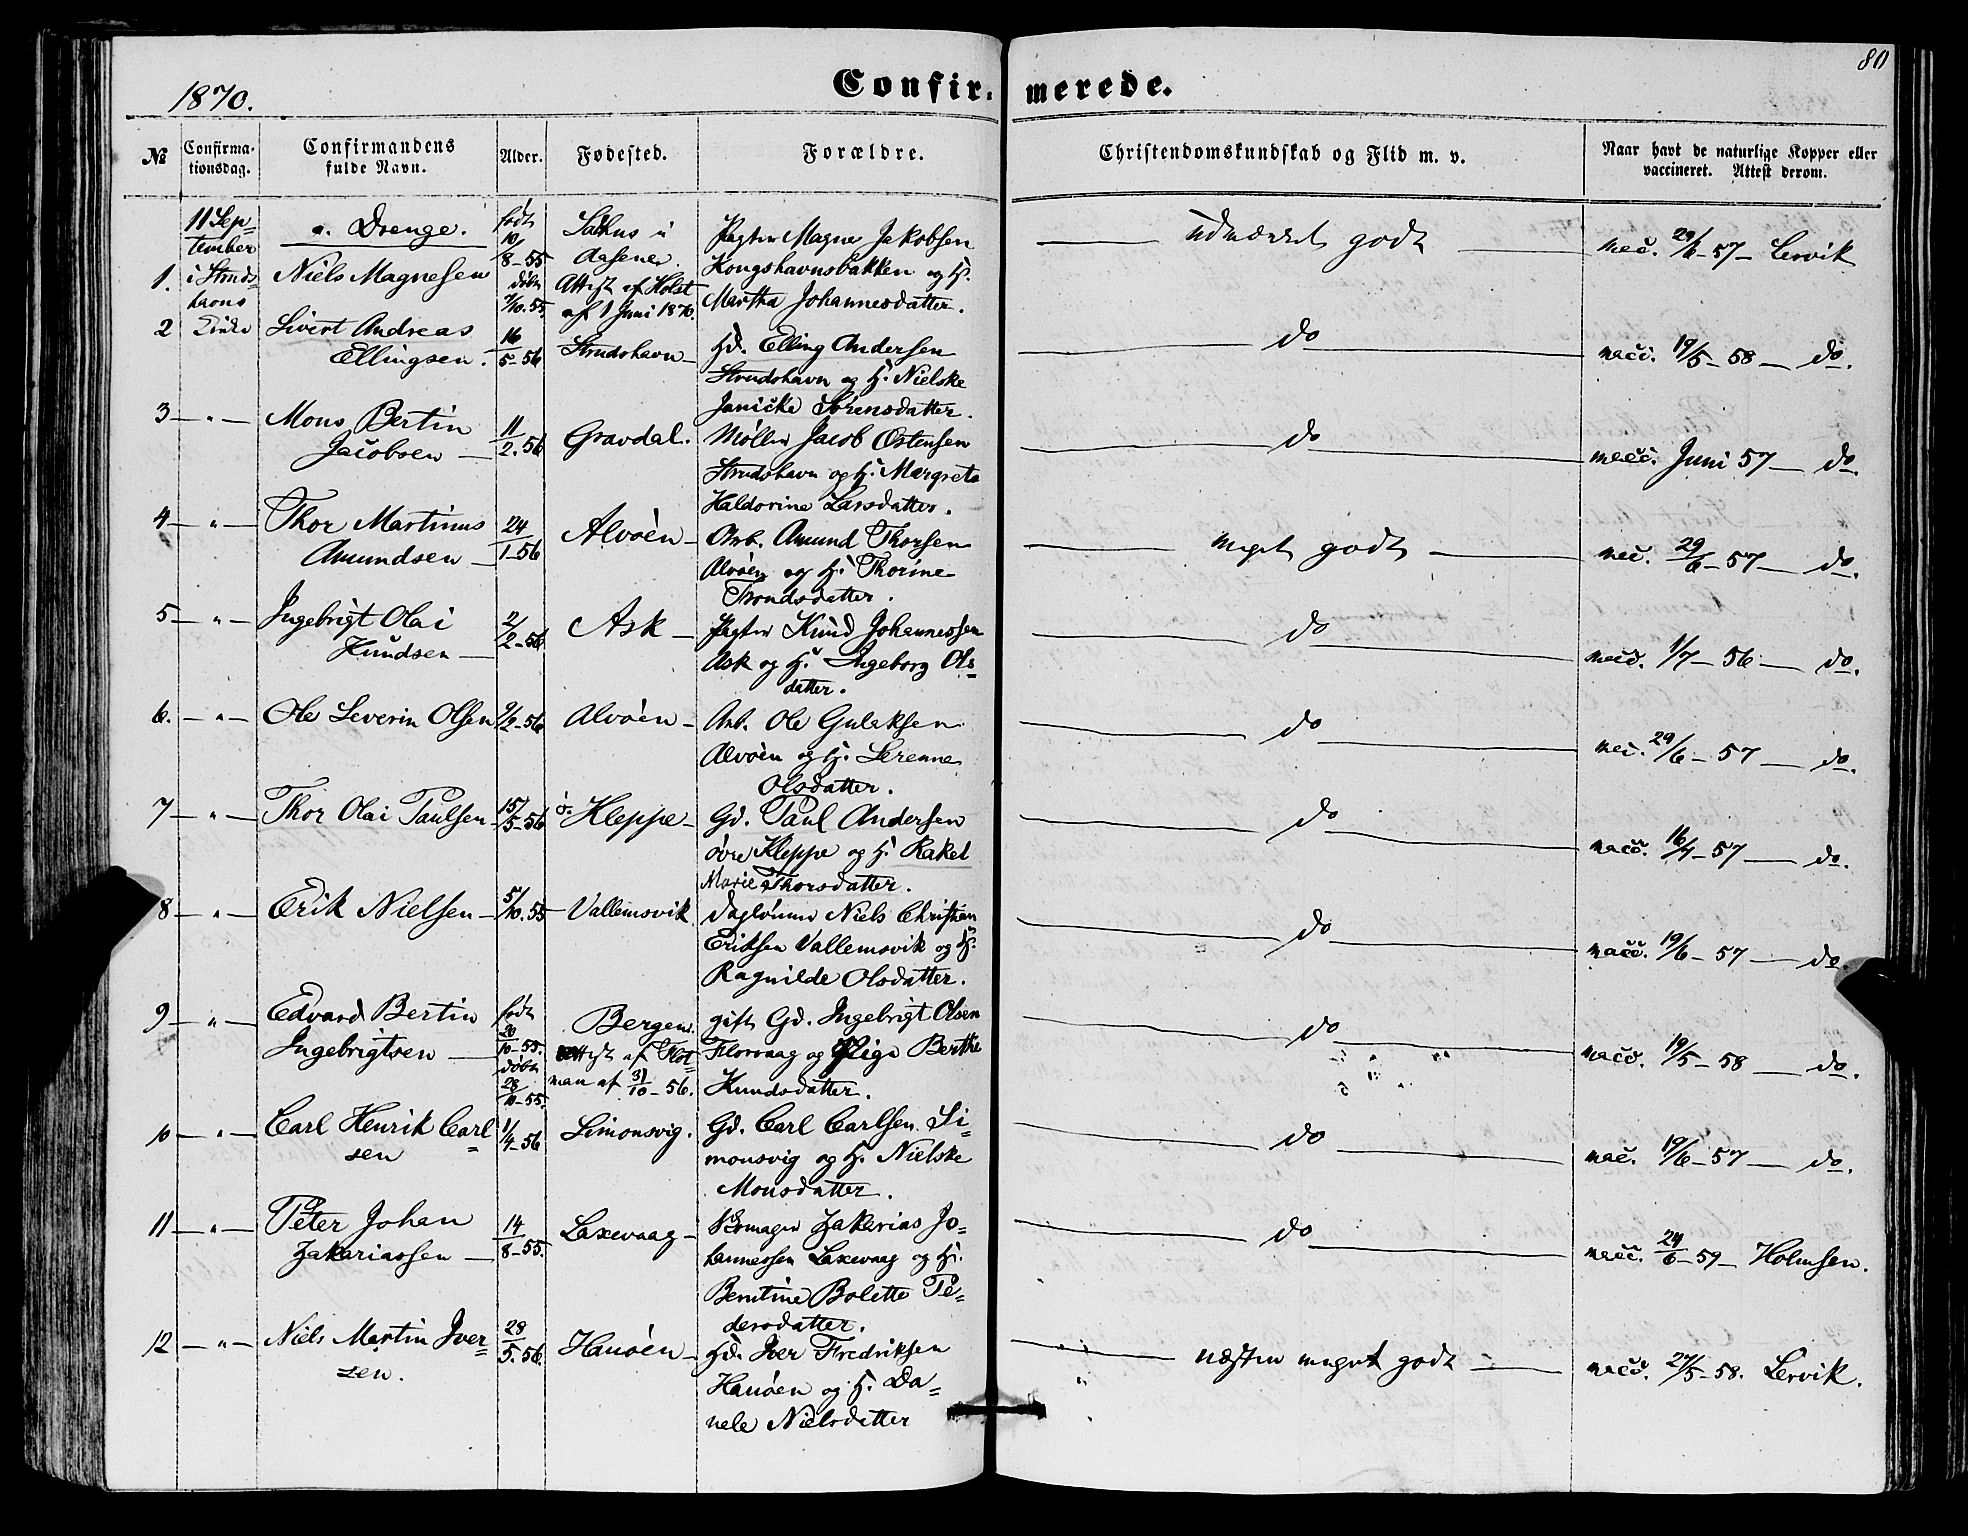 80
1870.
Confir- merede.
№
Confirma-
tionsdag.
Confirmandens
fulde Navn.
Alder.
Fødested.
Forældre.
Christendomskundskab og Flid m. v.
Naar havt de naturlige Kopper eller
vaccineret. Attest derom.
11 Sep-
tember
i Struds-
havns
Kirke
a. Drenge.
1. Niels Magnesen
født
10/8-55
døbt
7/10.55.
Attest af Holst
af 1 Juni 1870.
Pagter Magne Jakobsen
Kongshavnsbakken og H.
Martha Johannesdatter.
Udmærket godt
vacc. 29/6-57- Lervik
2 Sivert Andreas
Ellingsen.
16/5-56
Strudshavn
Hd. Elling Andersen
Strudshavn og H. Nielske
Janicke Sørensdatter.
do
vacc. 19/5-58 - do.
3 - " - Mons Bertin
Jacobsen
11/2.56
Gravdal.
Møller Jacob Ostensen
Strudshavn og H. Margrete
Haldorine Larsdatter.
do
vacc. Juni 57 - do.
4 - " - Thor Martinus
Amundsen
24/1-56
Alvøen
Arb. Amund Thorsen
Alvøen og H. Thorine
Trondsdatter.
meget godt
vacc. 29/6-57 - do.
5 - " - Ingebrigt Olai
Knudsen
2/2-56
Ask
Pagter Knud Johannessen
Ask og H. Ingeborg Ols-
datter.
do
vacc. 1/7-56 - do.
6. - " - Ole Severin Olsen
9/2-56
Alvøen
Arb. Ole Gulaksen
Alvøen og H. Serenne
Olsdatter.
do
vacc. 29/6-57 - do.
7 - " - Thor Olai Paulsen
15/5-56
ø. Kleppe
Gd. Paul Andersen
øvre Kleppe og H. Rakel
Marie Thorsdatter.
do
vacc. 16/7-57 - do.
8 - " - Erik Nielsen
5/10.55
Vallemsvik
Daglønner Niels Christian
Eriksen Vallemsvik og H.
Ragnilde Olsdatter.
do
vacc. 19/6-57 - do.
9 - " - Edvard Bertin
Ingebrigtsen
født
20/10-55.
døbt
28/10-55.
Bergen.
Attest af Flot-
man af 31/10-56.
gift Gd. Ingebrigt Olsen
Florvaag og Pige Berthe
Knudsdatter.
do
vacc. 19/5-58 do.
10 - " - Carl Henrik Carl-
sen
1/4-56
Simonsvig.
Gd. Carl Carlsen Si-
monsvig og H. Nielske
Monsdatter.
do
vac. 19/6-57 - do.
11 - " - Peter Johan
Zakariassen
14/8-55.
Laxevaag
Zakarias Jo-
hannessen Laxevaag og H.
Berntine Bolette Pe-
dersdatter.
do
vacc. 24/6-59- Holmsen.
12 - " - Niels Martin Iver-
sen.
28/5.56.
Hanøen
Hd. Iver Fredriksen
Hanøen og H. Da-
nele Nielsdatter
næsten meget godt
vacc. 27/5-58. Lervik.